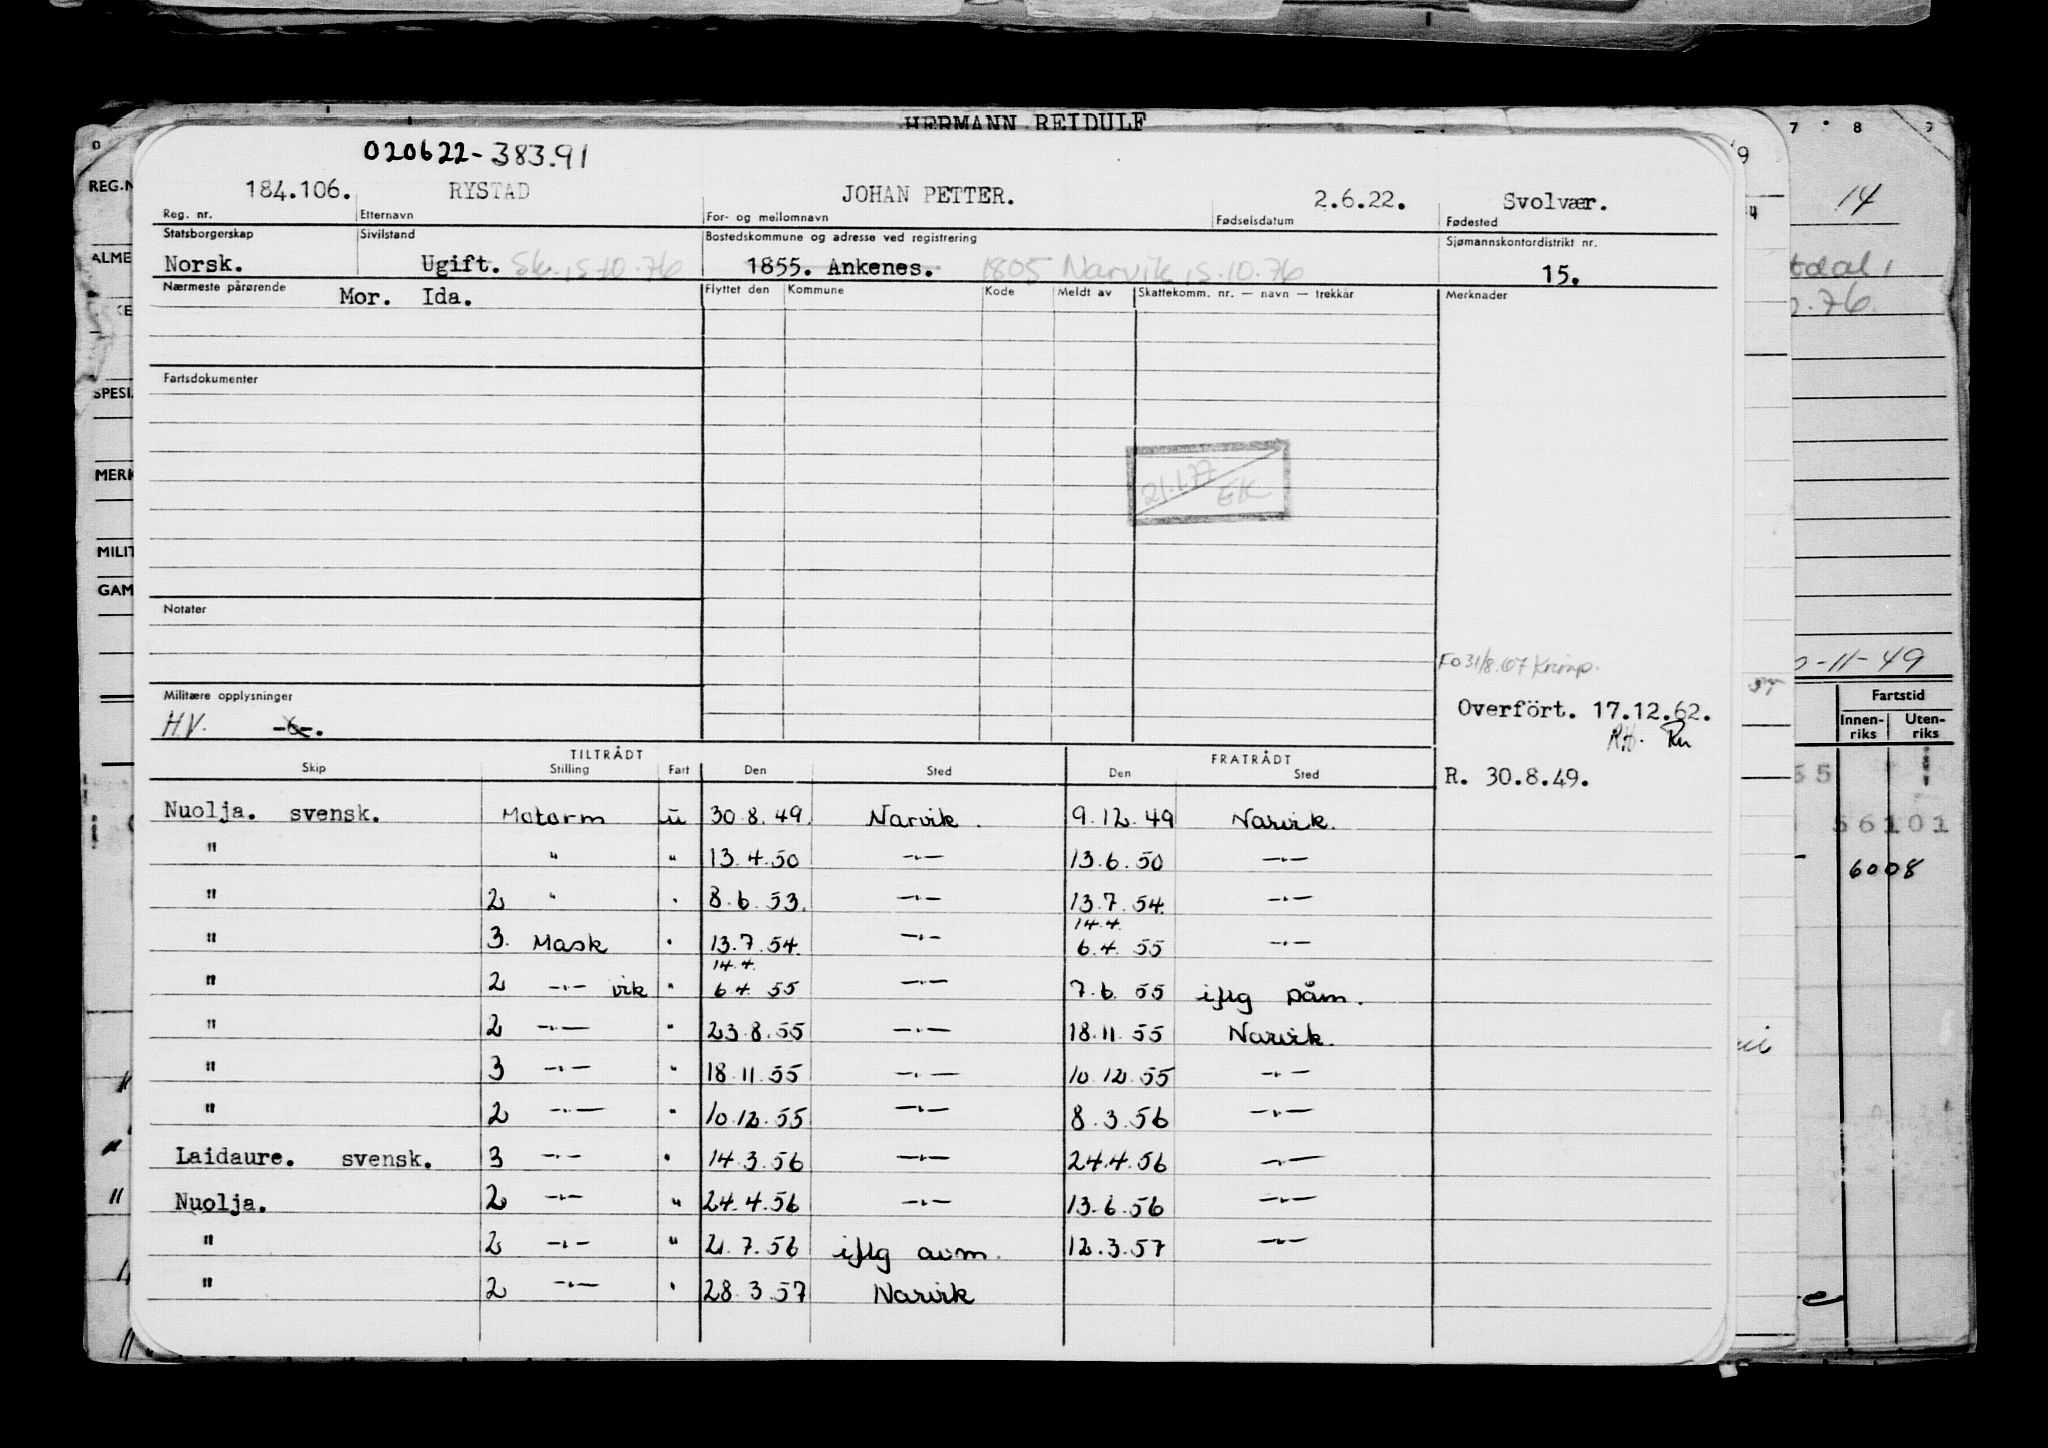 HERMANN REIDULF
020622-383.91
184.106. RYSTAD JOHAN PETTER. 2.6.22. Svolvær.
Reg. nr. Etternavn For- og mellomnavn Fødselsdatum Fødested
Statsborgerskap Sivilstand Bostedskommune og adresse ved registrering Sjømannskontordistrikt nr.
Norsk. Ugift. Sk. 15.10.76 1855. Ankenes. 1805 Narvik 15.10.76 15.
Nærmeste pårørende Mor. Ida. Flyttet den Kommune Kode Meldt av Skattekomm. nr. — navn — trekkår Merknader
Fartsdokumenter
21.1.77 EK
Notater
Fo 31/8.67 Krimp.
Militære opplysninger
HV. -6-.
Overfört. 17.12.62.
RH. Rn
TILTRÅDT FRATRÅDT
Skip Stilling Fart Den Sted Den Sted
R. 30.8.49.
Nuolja. svensk. Motorm u 30.8.49. Narvik. 9.12.49 Narvik.
" " " 13.4.50 —·— 13.6.50 —·—
" 2 " · 8.6.53. —·— 13.7.54. —·—
" 3. Mask · 13.7.54. —·— 14.4. 6.4.55 —·—
" 2 —·— vik " 14.4. 6.4.55 —·— 7.6.55 iflg påm.
" 2 —·— " 23.8.55 —·— 18.11.55 Narvik.
" 3 —·— " 18.11.55 —·— 10.12.55 —·—
" 2 —·— " 10.12.55 —·— 8.3.56 —·—
Laidaure. svensk. 3 —·— · 14.3.56 —·— 24.4.56 —·—
Nuolja. 2 —·— " 24.4.56 —·— 13.6.56 —·—
" 2 —·— " 21.7.56 iflg avm. 12.3.57 —·—
" 2 —·— · 28.3.57 Narvik
REG.N
ALME
SPESI
MERK
MILIT
GAM
7 8 9
14
.76
-11-49
Fartstid
Innen-riks Uten-riks
65
56101
6008